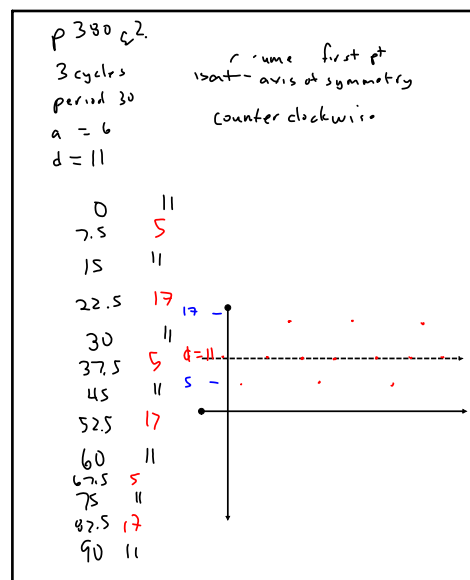 p 380 q 2.
3 cycles
period 30
a = 6
d = 11
first pt
axis of symmetry
counter clockwise
0 11
7.5 5
15 11
22.5 17
30 11
37.5 5
45 11
52.5 17
60 11
67.5 5
75 11
82.5 17
90 11
17
d = 11
5